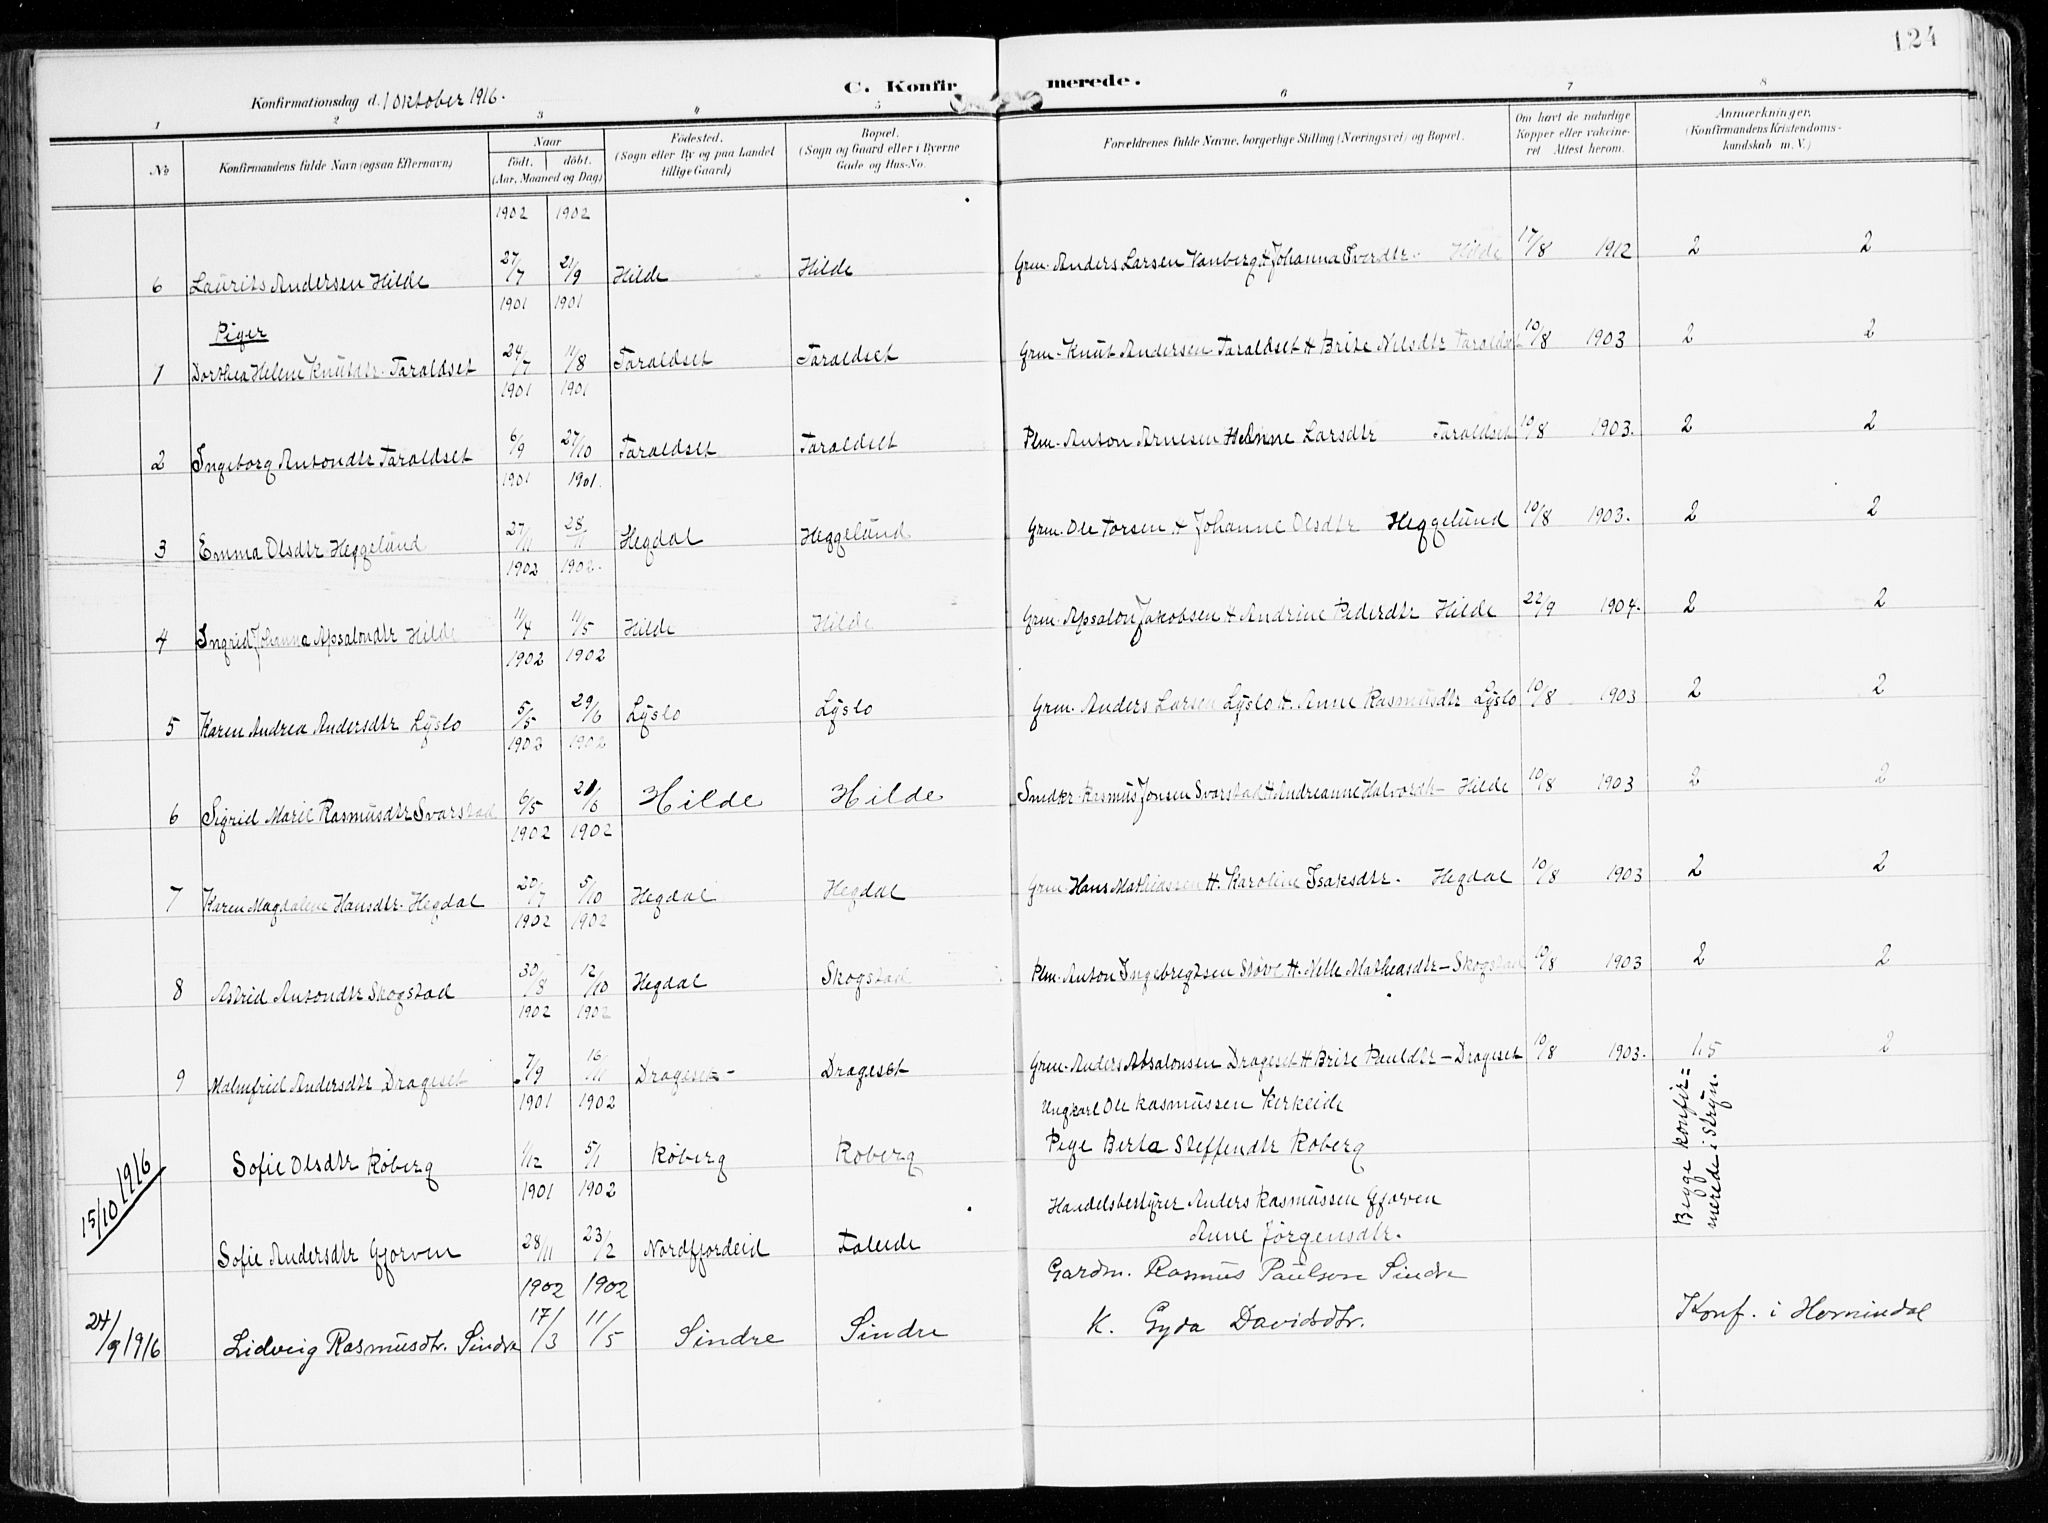 124
C. Konfirmerede.
Konfirmationsdag d. 1 Oktober 1916.
1 2 3 4 5 6 7 8
No
Konfirmandens fulde Navn (ogsaa Efternavn)
Naar
födt. döbt.
(Aar, Maaned og Dag)
Födested.
(Sogn eller By og paa Landet
tillige Gaard)
Bopæl.
(Sogn og Gaard eller i Byerne
Gade og Hus-No.
Forældrenes fulde Navne, borgerlige Stilling (Næringsvei) og Bopæl.
Om havt de naturlige
Kopper eller vakcine-
ret Attest herom.
Anmærkninger.
(Konfirmandens Kristendoms-
kundskab m. V.)
1902 1902
6 Laurits Andersen Hilde 27/7 21/9 Hilde Hilde Grm. Anders Larsen Vanberg H Johanna Hilde 17/8 1912 2 2
Piger
1901 1901
1 Dorthea Helene Knutdtr. Taraldset 24/7 11/8 Taraldset Taraldset Grm. Knut Andersen Taraldset H Brite Nilsdtr Taraldset 10/8 1903 2 2
1901 1901
2 Ingeborg Antondtr Taraldset 6/9 27/10 Taraldset Taraldset Plm. Anton Arnesen H Anne Larsdtr Taraldset 10/8 1903. 2 2
1901 1901.
3 Emma Olsdtr Heggelund 27/11 28/11 Hegdal Heggelund Grm. Ole Torsen H Johanne Olsdtr Heggelund 10/8 1903. 2 2
1902 1902.
4 Ingrid Johanna Apsalondtr Hilde 11/4 11/5 Hilde Hilde Grm. Apsalon Jakobsen H Andrine Pedersdtr Hilde 22/9 1904. 2 2
1902 1902
5 Karen Andrea Andersdtr Lyslo 5/5 29/6 Lyslo Lyslo Grm. Anders Larsen Lyslo H. Anne Rasmusdtr Lyslo 10/8 1903 2 2
1902 1902
6 Sigrid Marie Rasmusdtr Svarstad 6/5 Hilde Hilde Rasmus Jonsen Svarstad H Andreanne Hilde 10/8 1903 2 2
1902 1902
7 Karen Magdalene Hansdtr. Hegdal 20/7 5/10 Hegdal Hegdal Grm. Hans Mathiassen H. Karoline Isaksdtr. Hegdal 10/8 1903 2 2
1902 1902
8 Astrid Antondtr Skogstad 30/8 12/10 Hegdal Skogstad Plm. Anton Ingebregtsen Støve H. Nelle Matheasdtr - Skogstad 10/8 1903 2 2
1902 1902
9 Malmfrid Andersdtr Drageset 7/9 16/11 Drageset - Drageset Grm. Anders Absalonsen Drageset H Brite Pauldtr - Drageset 10/8 1903. 1.5 2
1901 1902
Ungkarl Ole Rasmussen Kirkeide
15/10 1916 Sofie Olsdtr Røberg 1/12 5/1 Røberg Roberg Pige Berta Steffendtr Roberg
Begge konfir=
merede i Stryn.
1901 1902
Handelsbestyrer Anders Rasmussen Gjorven
Sofie Andersdtr Gjorven 28/11 23/2 Nordfjordeid Faleide Anne Jørgensdtr.
1902 1902
Gardm. Rasmus Paulson Sindre
24/9 1916 Lidveig Rasmusdtr. Sindre 17/3 11/5 Sindre Sindre K. Gyda Davidsdtr. Konf. i Hornindal